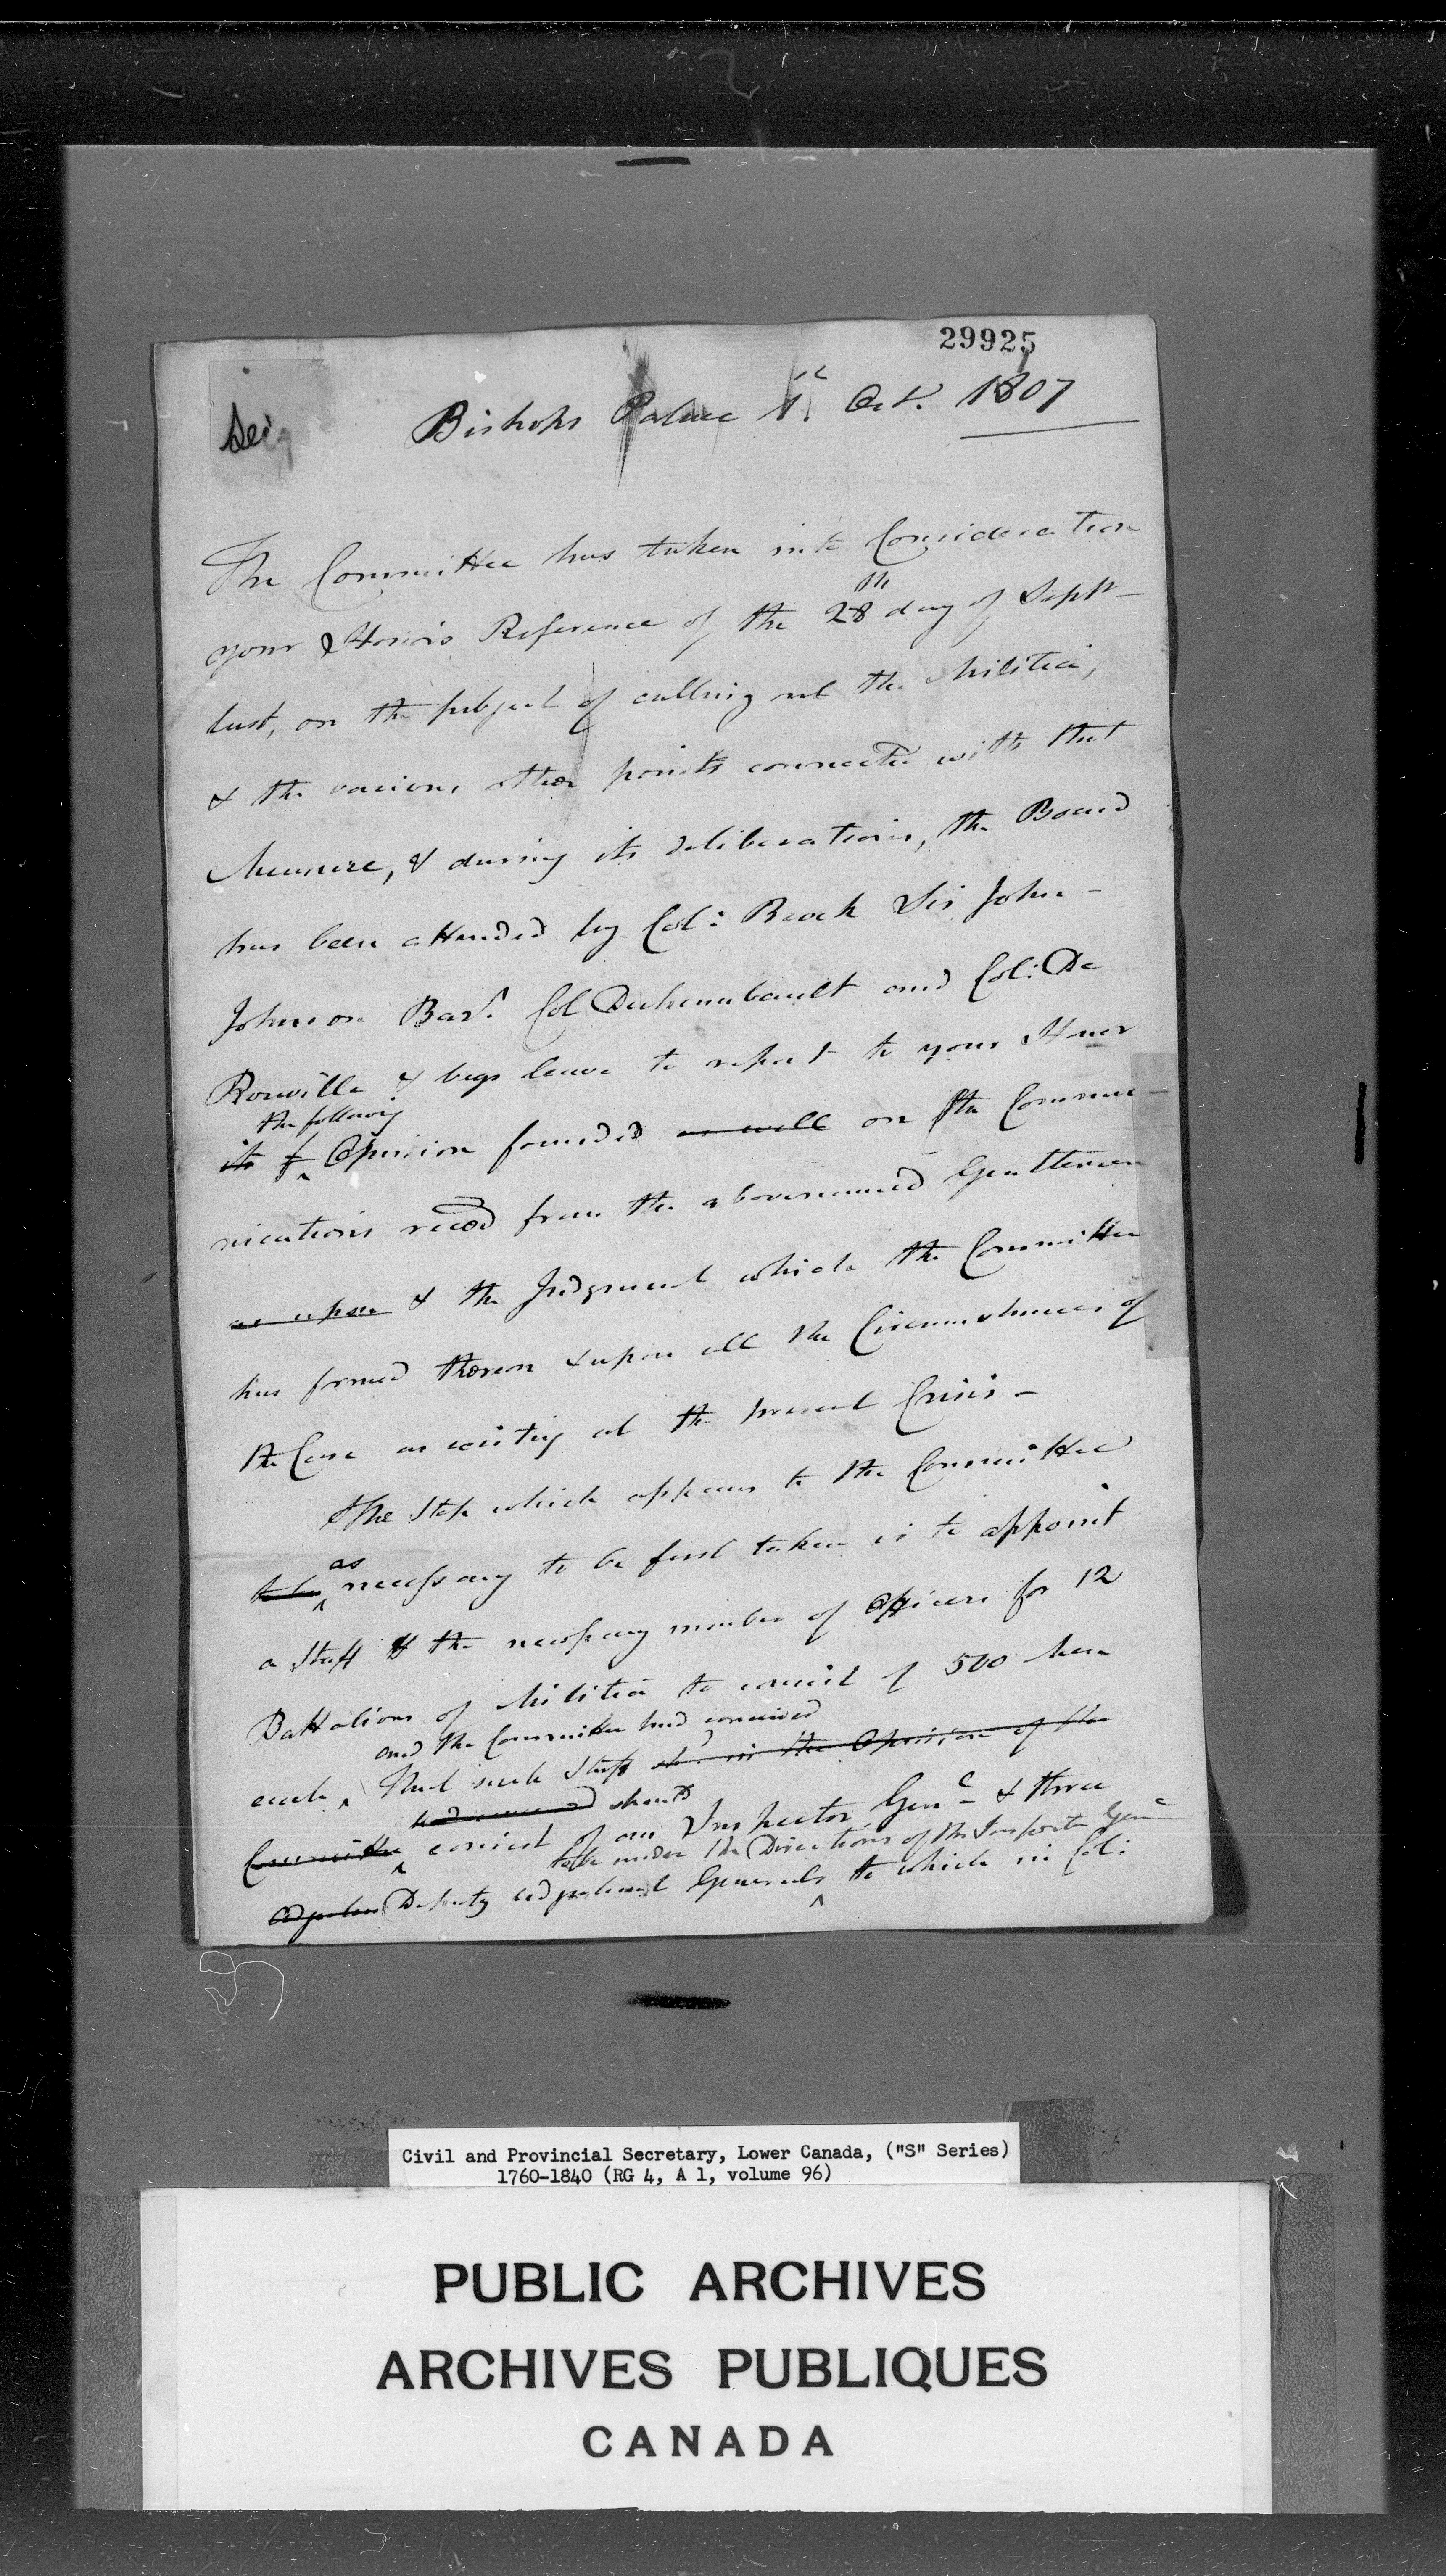 29925
Seig
Bishops Palace 1st Oct. 1807
The Committee has taken into Consideration
your Honors Reference of the 28th day of Septr
last, on the subject of calling out the Militia,
& the various other points connected with that
Measure, & during its deliberations, the Board
has been attended by Col: Brock Sir John
Johnson Bart. Col Duchambault and Col: De
Rouville & begs leave to report to your Honor
the following
its Opinion founded as well on the Commu-
nications reced from the abovenamed Gentlemen
as upon & the Judgment which the Committee
has formed thereon & upon all the Circumstances of
the Case as existing at the present Crisis -
The Step which appears to the Committee
as
to be necessary to be first taken is to appoint
a Staff & the necessary number of Officers for 12
Battalions of Militia to consist of 500 Men
and the Committee had conceived
each, That such Staff in the Opinion of the
had conceived should
Committee consist of an Inspector Genl & three
to be under the Directions of the Inspector Genl
Adjutant Deputy Adjutant Generals to which in Col:
Civil and Provincial Secretary, Lower Canada, ("S" Series)
1760-1840 (RG 4, A 1, volume 96)
PUBLIC ARCHIVES
ARCHIVES PUBLIQUES
CANADA